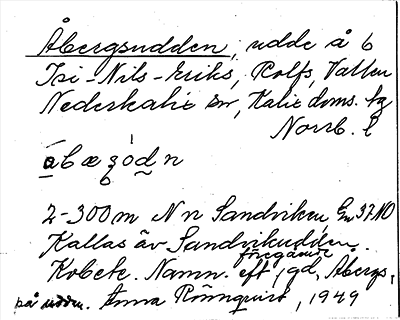 Åbergsudden, udde å 6
Isi-Nils-Eriks, Rolfs, Vatten
Nederkalix sn, Kalix doms. hg
Norrb. l
åbæʒód̲n
2-300 m N n Sandviken, Gm 37 NO
Kallas äv Sandvikudden.
föregående
Kobete. Namn. eft. gd, Åbergs,
på udden. Anna Rönnquist, 1949